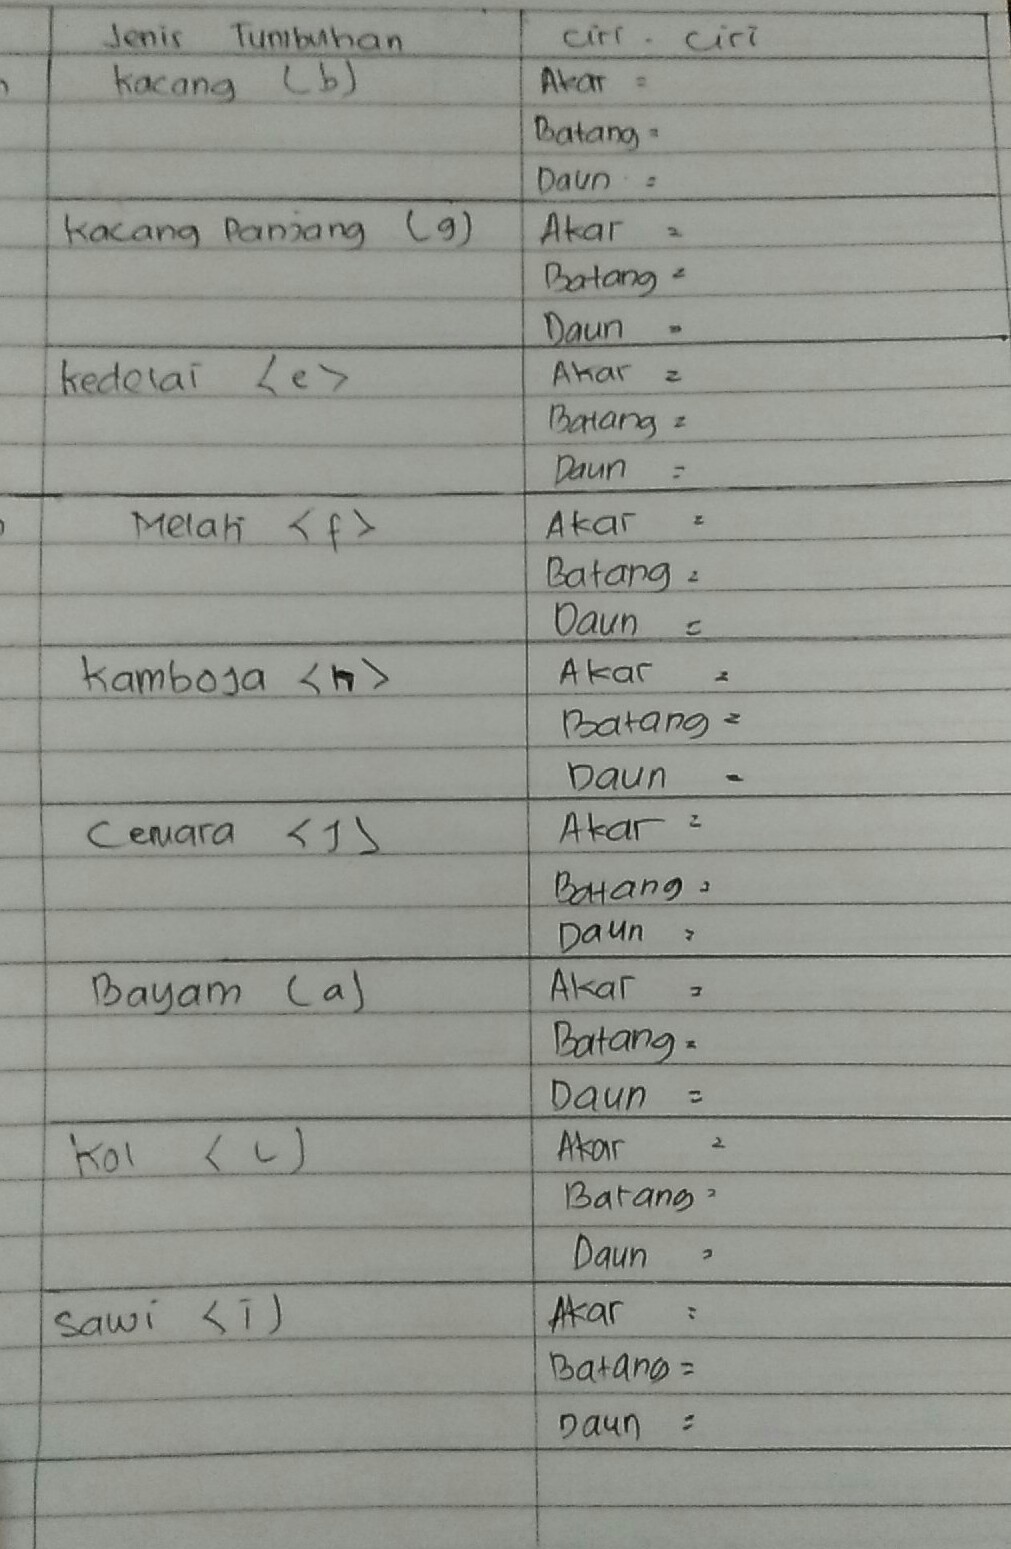 Jenis Tumbuhan ciri - ciri
Kacang (b) Akar =
Batang =
Daun =
Kacang Panjang (g) Akar =
Batang =
Daun =
Kedelai <e> Akar =
Batang =
Daun =
Melati <f> Akar =
Batang =
Daun =
Kamboja <h> Akar =
Batang =
Daun =
Cemara <J> Akar =
Batang =
Daun =
Bayam (a) Akar =
Batang =
Daun =
Kol < L) Akar =
Batang =
Daun =
Sawi <i) Akar =
Batang =
Daun =